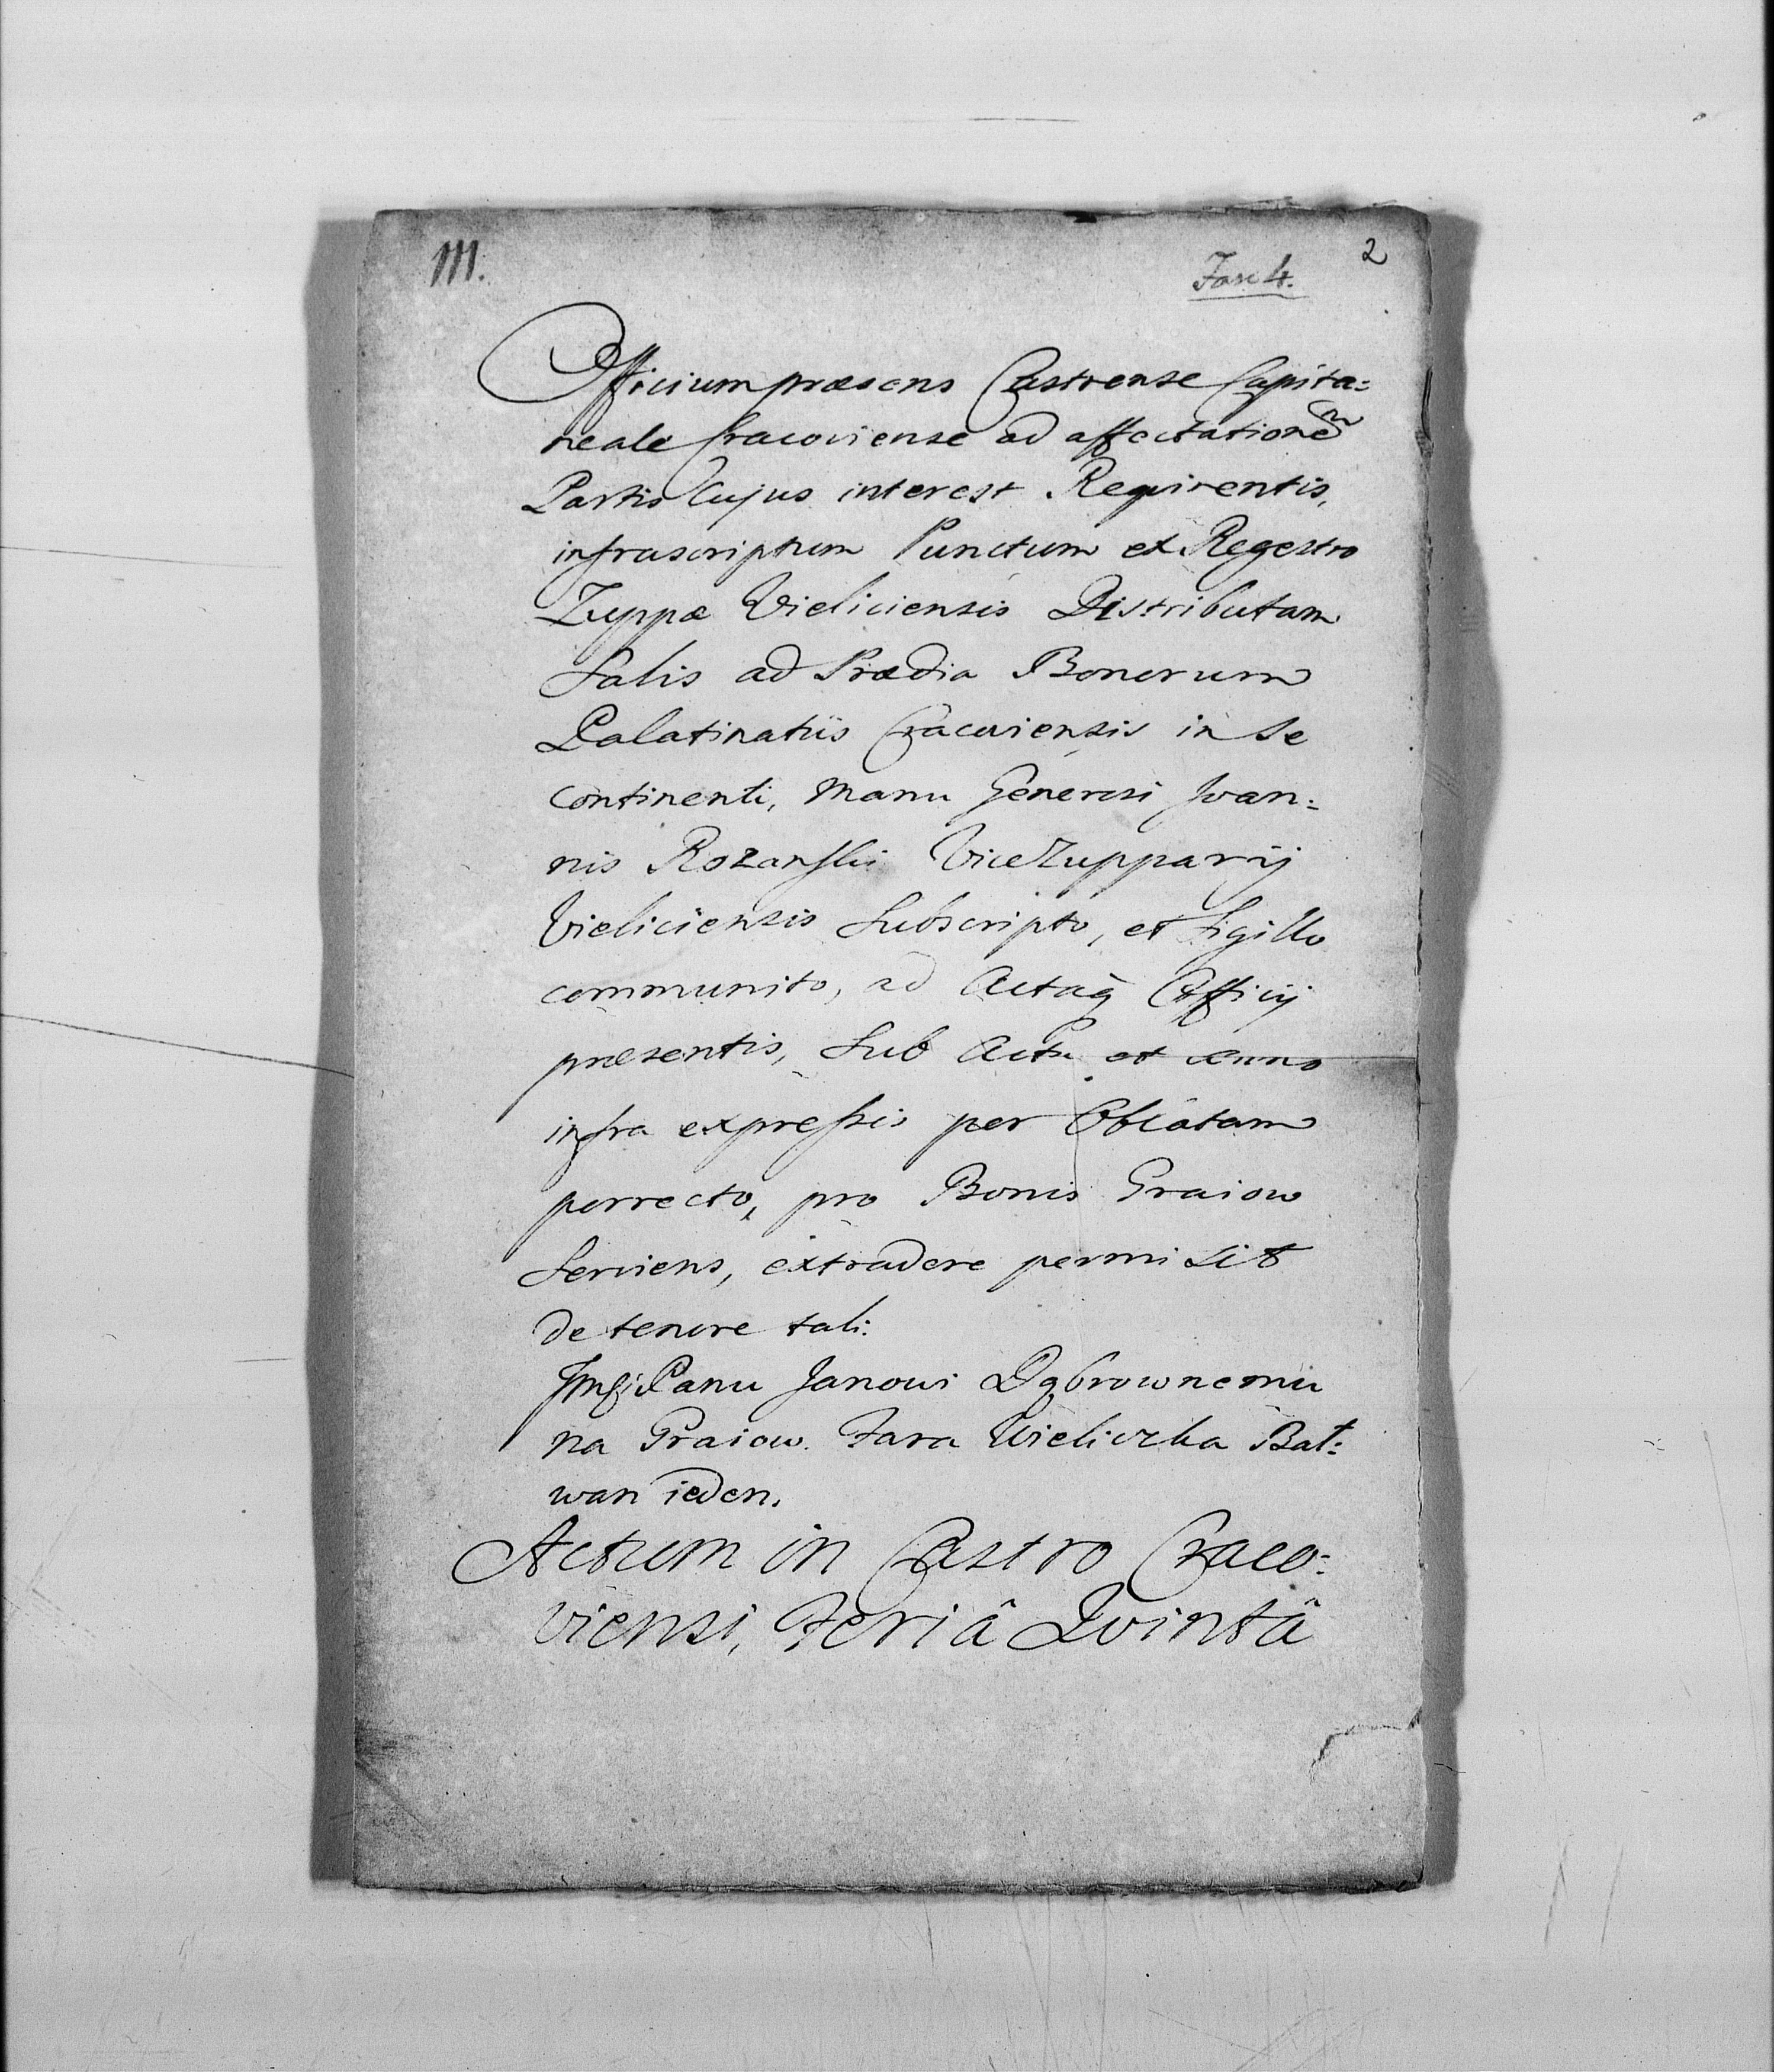 III.
2
Fasc 4.
Officium præsens Castrense Capita=
neale Cracoviense ad affectatione͠m
Partis Cujus interest Reqvirentis,
infrascriptum Punctum ex Regestro
Zuppæ Vieliciensis Distributam
Salis ad Prædia Bonorum
Palatinatûs Cracoviensis in se
continenti, manu Generosi Joan=
nis Rozanski ViceZupparij
Vieliciensis Subscripto, et Sigillo
communito, ad Actaq Officij
præsentis, Sub Actu et anno
infra expressis per Oblatam
porrecto, pro Bonis Graiow
Serviens, extradere permisit
de tenore tali:
Panu Janowi Dąbrownemu
na Graiow. Fara Wieliczka Bał=
wan ieden.
Actum in Castro Craco=
viensi, Feriâ Qvintâ